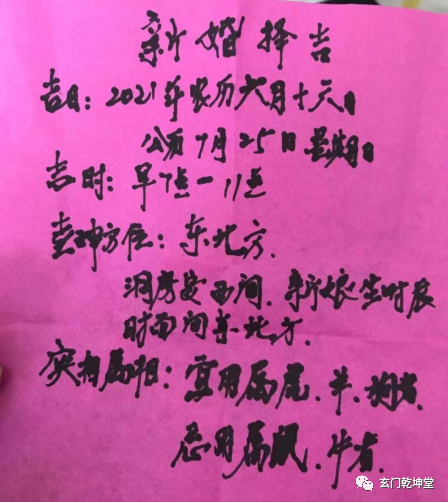 新婚择吉
吉日：2021年农历六月十六日
公历7月25日星期日
吉时：早7点—11点
喜神方位：东北方.
洞房安西间.新娘坐时辰
时面向东北方.
实相属相：宜用属虎、羊、狗者.
忌用属鼠、牛者.
玄门乾坤堂